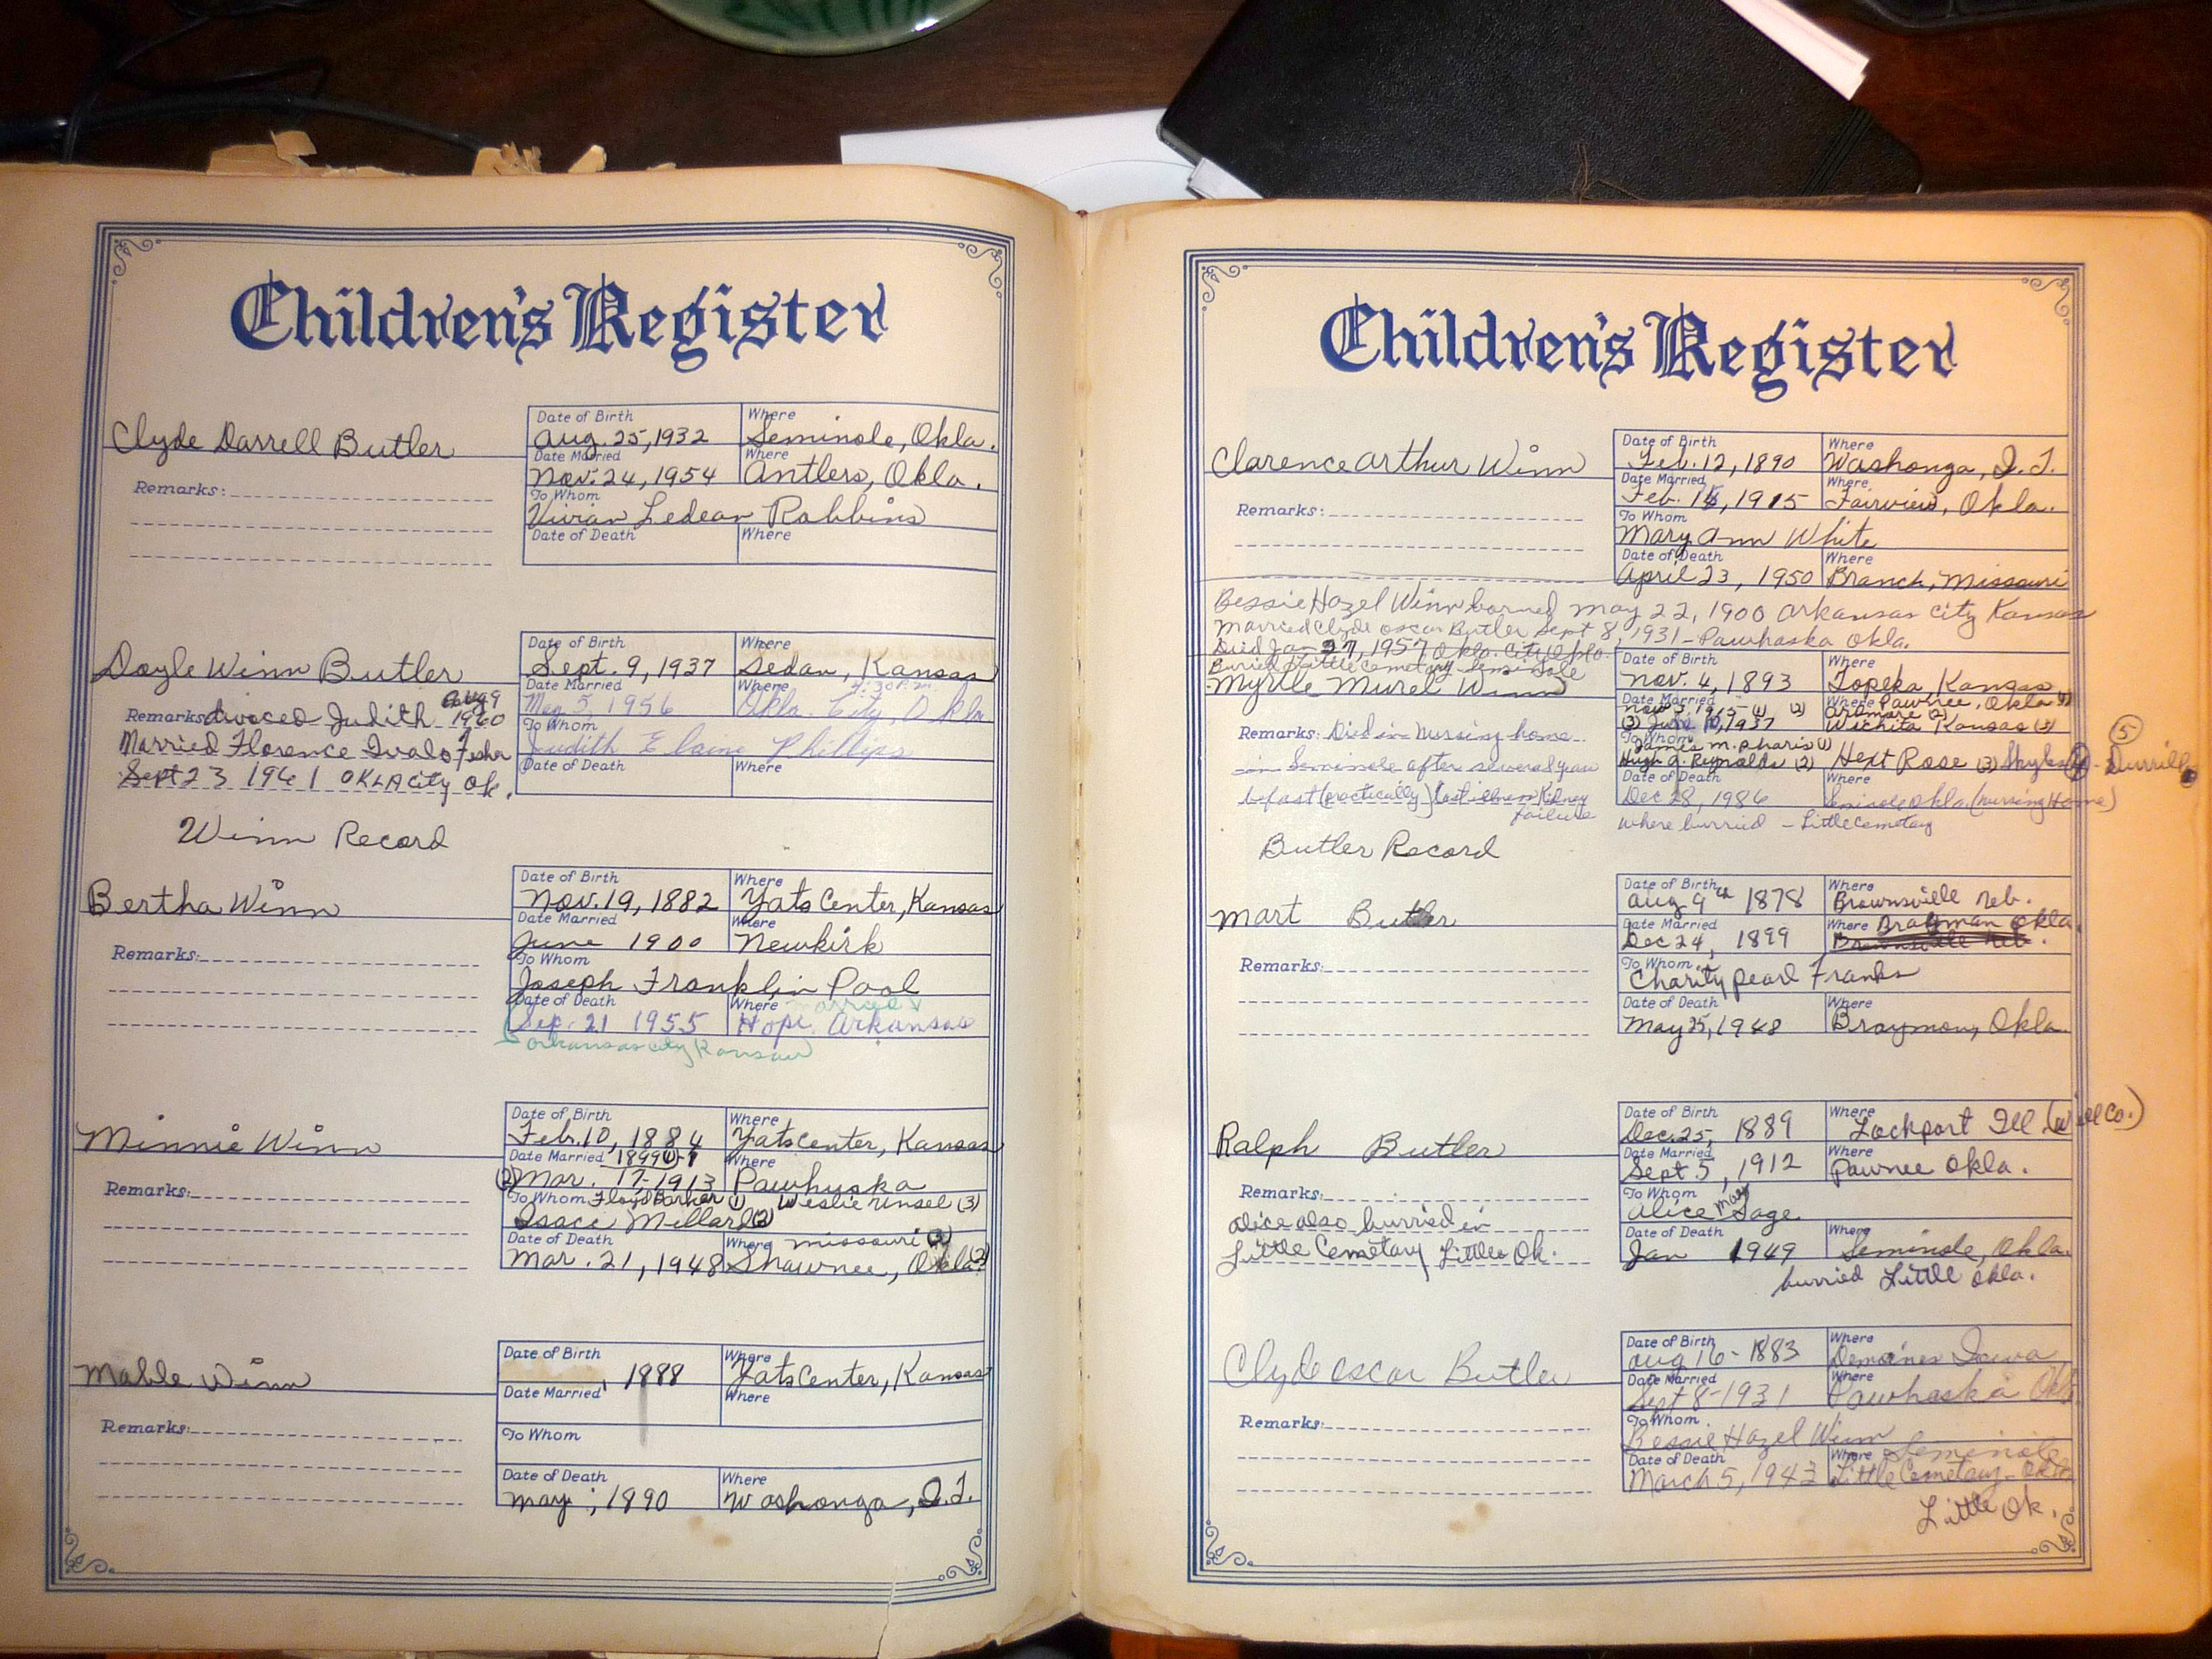 Children's Register
Clyde Darrell Butler
Date of Birth Aug. 25, 1932 Where Seminole, Okla.
Date Married Nov. 24, 1954 Where Antlers, Okla.
Remarks:
To Whom
Vivian Ledean Robbins
Date of Death Where
Doyle Winn Butler
Date of Birth Sept. 9, 1937 Where Sedan, Kansas
Date Married 5, 1956 Where Okla. City, Okla
Remarks divoced Judith Aug 9 1960
Married Florence
Sept 23 1961 OKLA City Ok.
To Whom
Judith Elaine Phillips
Date of Death Where
Winn Record
Bertha Winn
Date of Birth Nov. 19, 1882 Where Yats Center, Kansas
Date Married June 1900 Where Newkirk
Remarks:
To Whom
Joseph Franklin Pool
Date of Death Sep. 21 1955 Where Hope, Arkansas
married
Arkansas city Kansas
Minnie Winn
Date of Birth Feb. 10, 1884 Where Yatscenter, Kansas
Date Married 1899 (1)
(2) Mar. 17-1913 Where Pawhuska
Remarks:
To Whom Floyd Barker (1) Weslie Unsel (3)
Isace Millard (2)
Date of Death Mar. 21, 1948 Where Missouri (3)
Shawnee, Okla (2)
Mable Winn
Date of Birth , 1888 Where Yats Center, Kansas
Date Married Where
Remarks:
To Whom
Date of Death May , 1890 Where Washonga, I.T.
Children's Register
Clarence Arthur Winn
Date of Birth Feb. 12, 1890 Where Washonga, I.T.
Date Married Feb. , 1915 Where Fairview, Okla.
Remarks:
To Whom
Mary Ann White
Date of Death April 23, 1950 Where Branch, Missouri
Bessie Hazel Winn borned May 22, 1900 Arkansas City Kansas
Married Clyde Oscar Butler Sept 8, 1931 - Pawhaska Okla.
Died Jan 27, 1957 Okla. City Okla.
Buried Little Cemetary
Myrtle Murel Winn
Date of Birth Nov. 4, 1893 Where Topeka, Kansas
Date Married 1915 (1) (2) Where Pawnee, Okla
Ardmore (2)
(3) June 10, 1937 Wichita Kansas (3)
Remarks: Died in nursing home
in Seminole after several years
befast (practically) last illness Kidney
failure
To Whom James M. Pharis (1)
Hugh A. Reynolds (2) Hext Rose (3)
(5)
Date of Death Dec 28, 1986 Where Seminole Okla. (nursing Home)
where burried - Little Cemetary
Butler Record
Mart Butler
Date of Birth Aug 9th 1878 Where Brownsville Neb.
Date Married Dec 24, 1899 Where Brayman Okla.
Brownsville Neb.
Remarks:
To Whom
Charity Pearl Franks
Date of Death May 25, 1948 Where Braymon, Okla.
Ralph Butler
Date of Birth Dec. 25, 1889 Where Lockport Ill (Will Co.)
Date Married Sept 5, 1912 Where Pawnee Okla.
Remarks:
Alice also burried in
Little Cemetary Little Ok.
To Whom
Alice May Sage
Date of Death Jan 1949 Where Seminole, Okla.
burried Little Okla.
Clyde Oscar Butler
Date of Birth Aug 16-1883 Where Demoines Iowa
Date Married Sept 8-1931 Where Pawhaska Okla
Remarks:
To Whom
Bessie Hazel Winn
Date of Death March 5, 1943 Where Seminole
Little Cemetary - Okla
Little Ok.